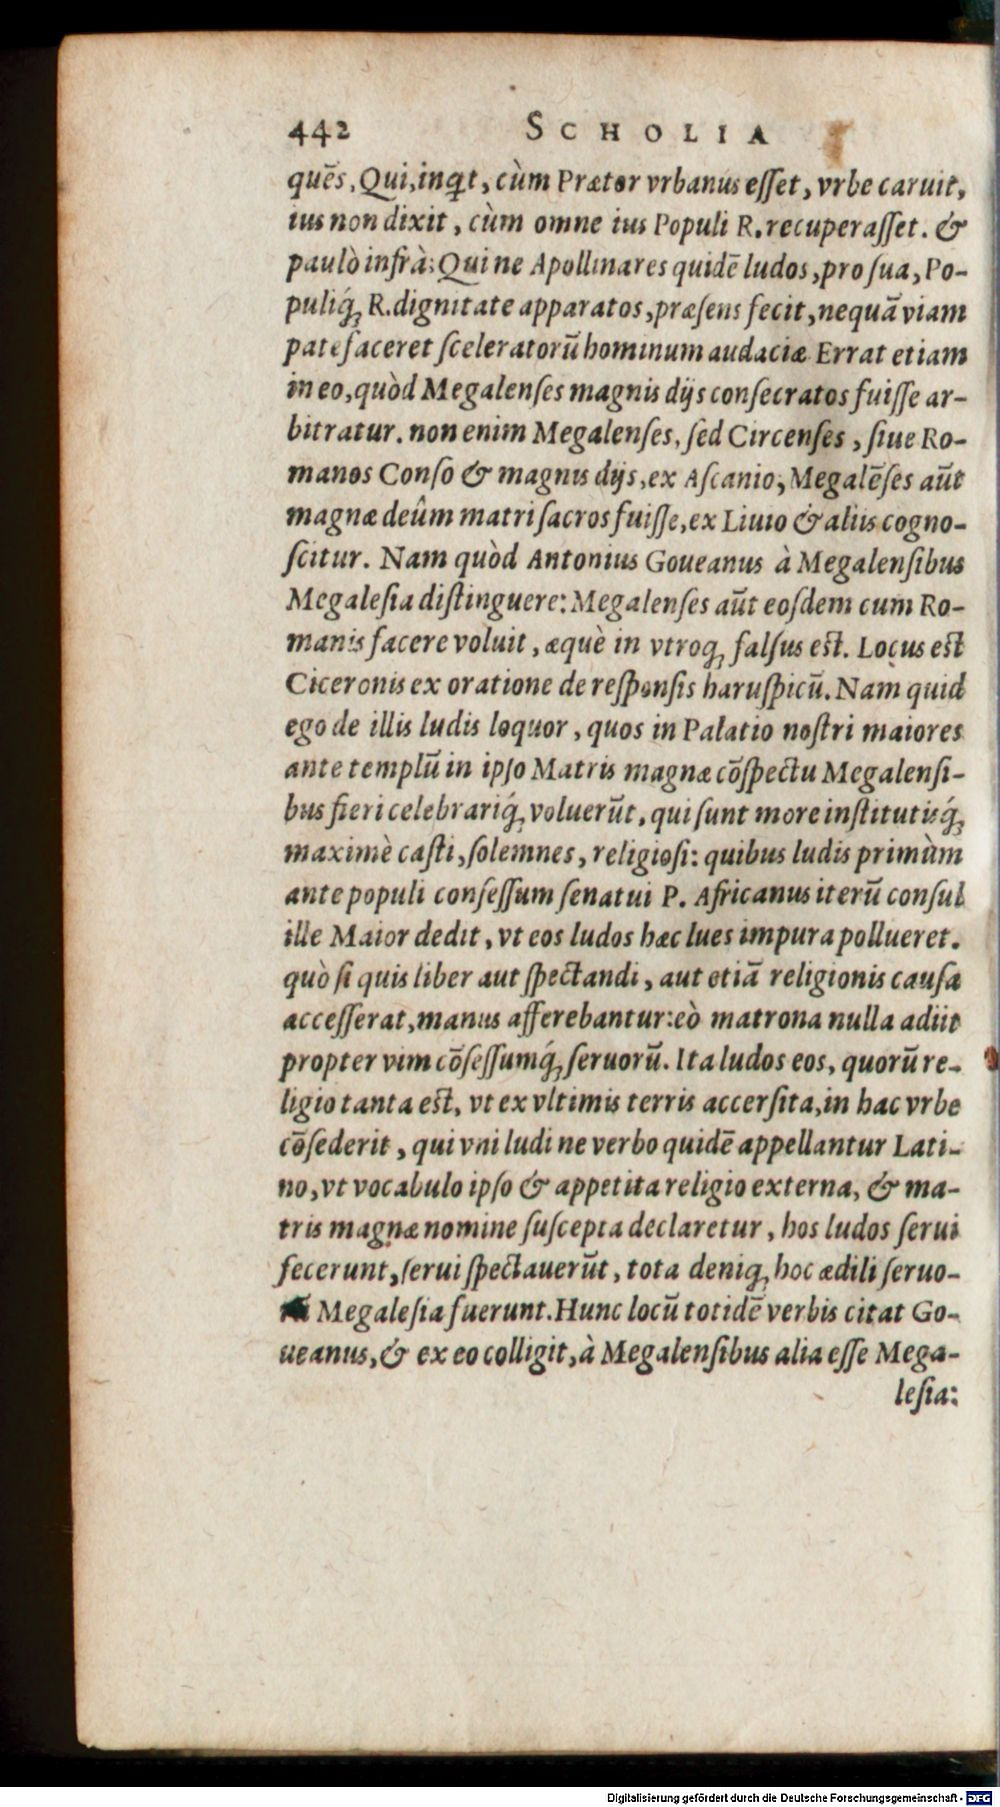 442 SCHOLIA
quẽs, Qui, inqt, cùm Prætor vrbanus esſet, vrbe caruit,
ius non dixit, cùm omne ius Populi R. recuperaſſet. &
paulò infrà: Qui ne Apollinares quidẽ ludos, pro ſua, Po-
puliq́; R. dignitate apparatos, præſens fecit, ne quã viam
patefaceret ſceleratorũ hominum audaciæ Errat etiam
in eo, quòd Megalenſes magnis dijs conſecratos fuiſſe ar-
bitratur. non enim Megalenſes, ſed Circenſes, ſiue Ro-
manos Conſo & magnis dijs, ex Aſcanio; Megalẽſes aũt
magnæ deûm matri ſacros fuiſſe, ex Liuio & aliis cogno-
ſcitur. Nam quòd Antonius Goueanus à Megalenſibus
Megaleſia diſtinguere: Megalenſes aũt eoſdem cum Ro-
manis facere voluit, æquè in vtroq; falſus eſt. Locus eſt
Ciceronis ex oratione de reſponſis haruſpicũ. Nam quid
ego de illis ludis loquor, quos in Palatio noſtri maiores
ante templũ in ipſo Matris magnæ cõſpectu Megalenſi-
bus fieri celebrariq́; voluerũt, qui ſunt more inſtitutisq́;
maximè caſti, ſolemnes, religioſi: quibus ludis primùm
ante populi conſeſſum ſenatui P. Africanus iterũ conſul
ille Maior dedit, vt eos ludos hæc lues impura pollueret.
quò ſi quis liber aut ſpectandi, aut etiã religionis cauſa
acceſſerat, manus afferebantur: eò matrona nulla adiit
propter vim cõſeſſumq́; ſeruorũ. Ita ludos eos, quorũ re-
ligio tanta eſt, vt ex vltimis terris accerſita, in hac vrbe
cõſederit, qui vni ludi ne verbo quidẽ appellantur Lati-
no, vt vocabulo ipſo & appetita religio externa, & ma-
tris magnæ nomine ſuſcepta declaretur, hos ludos ſerui
fecerunt, ſerui ſpectauerũt, tota deniq; hoc ædili ſeruo-
rũ Megaleſia fuerunt. Hunc locũ totidẽ verbis citat Go-
ueanus, & ex eo colligit, à Megalenſibus alia eſſe Mega-
leſia:
Digitalisierung gefördert durch die Deutsche Forschungsgemeinschaft - DFG